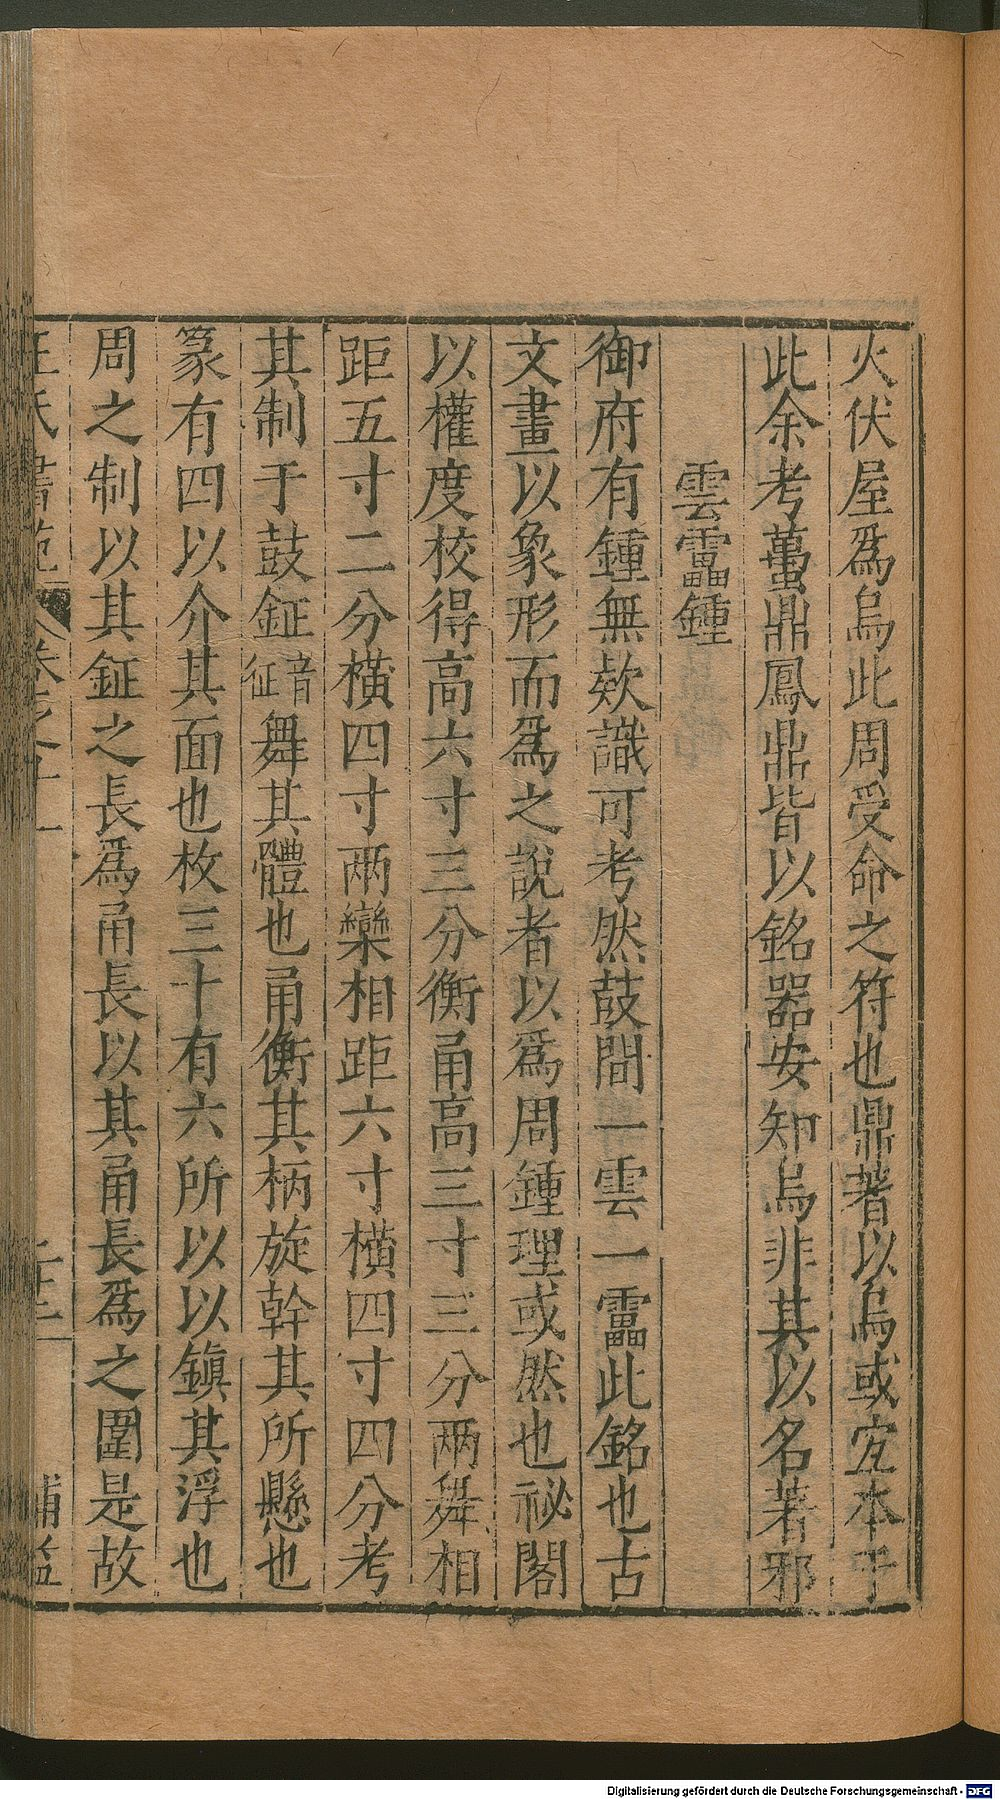 火伏屋爲烏此周受命之符也鼎著以烏或宜本于
此余考蠆鼎鳳鼎皆以銘器安知烏非其以名著邪
雲靁鍾
御府有鍾無欵識可考然鼓間一雲一靁此銘也古
文畫以象形而爲之說者以爲周鍾理或然也祕閣
以權度校得高六寸三分衡甬高三寸三分兩舞相
距五寸二分橫四寸兩欒相距六寸橫四寸四分考
其制于鼓鉦音征舞其體也甬衡其柄旋幹其所懸也
篆有四以介其面也枚三十有六所以以鎮其浮也
周之制以其鉦之長爲甬長以其甬長爲之圍是故
卷之十一
Digitalisierung gefördert durch die Deutsche Forschungsgemeinschaft - DFG